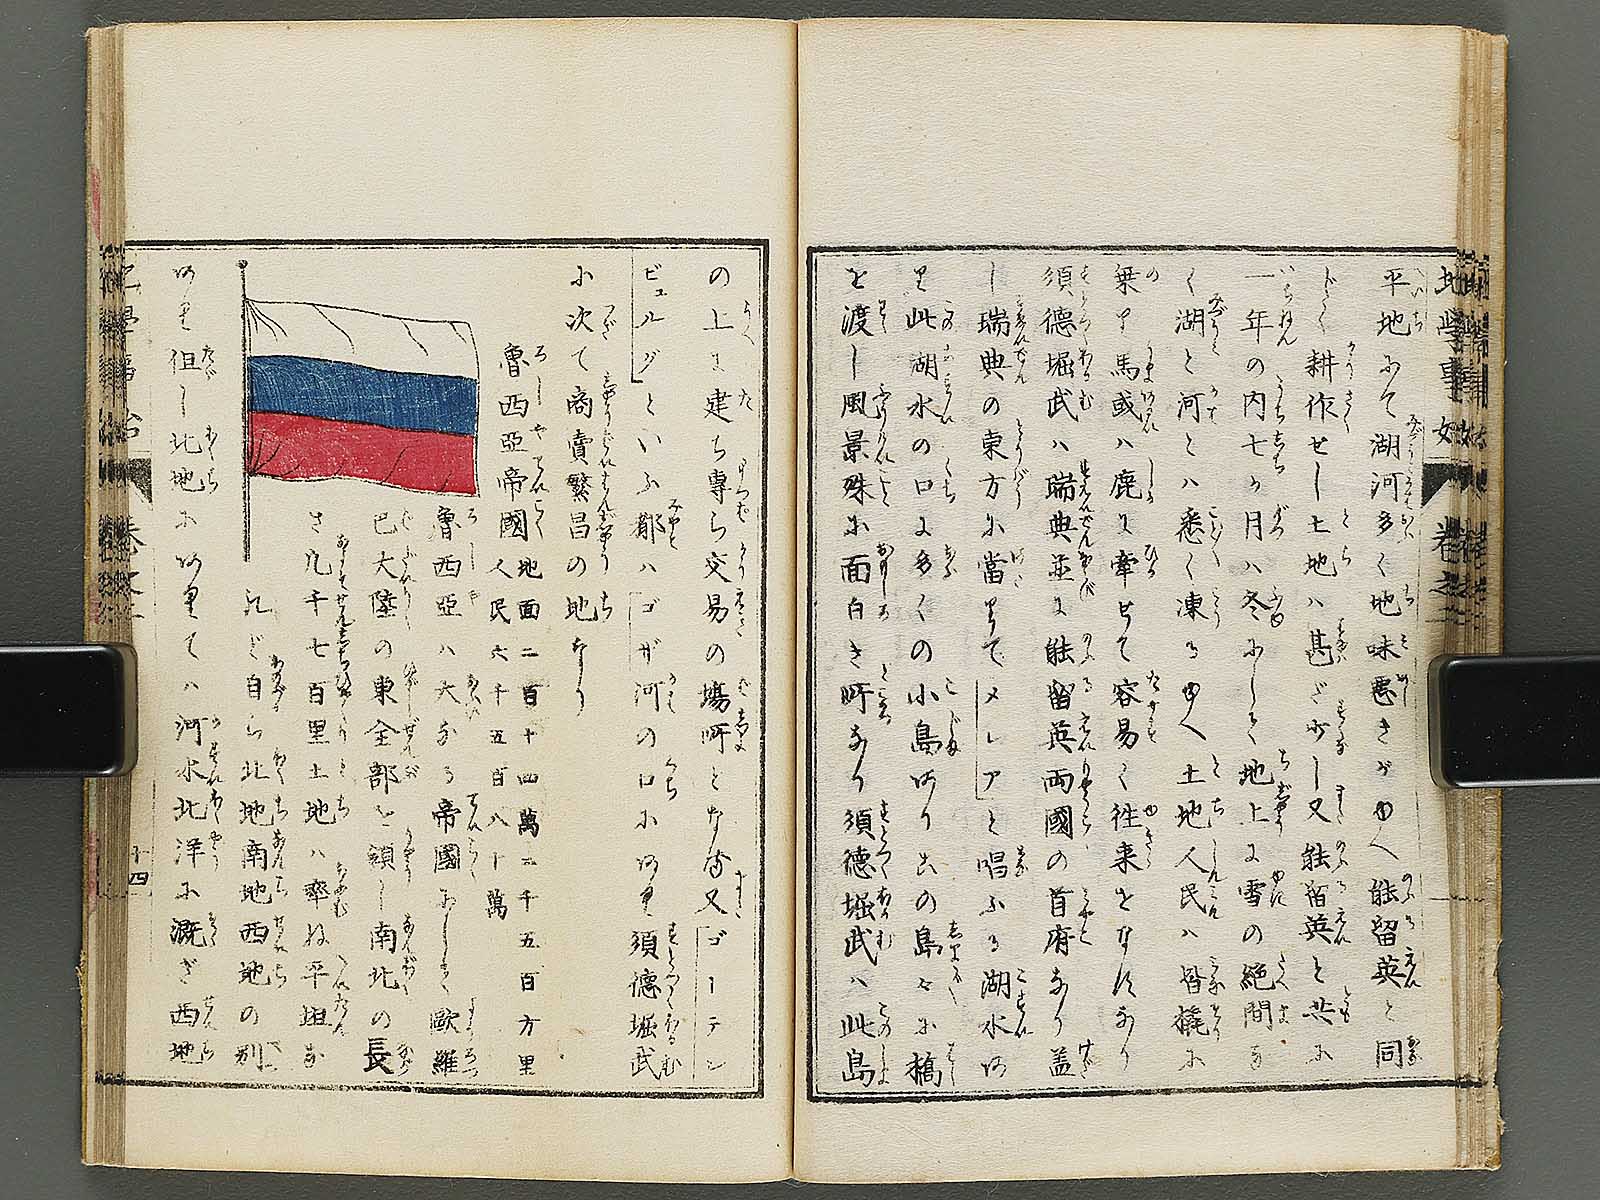 地學事始 巻之二
平地にて湖河多く地味悪きがゆへ能留英と同
じく耕作せし土地ハ甚ざ少し又能留英と共に
一年の内七ヶ月ハ冬にして地上に雪の絶間な
く湖と河とハ悉く凍るゆへ土地人民ハ皆橇に
乗り馬或ハ鹿に牽せて容易く往来をなすなり
須徳堀武ハ瑞典並に能留英両國の首府なり蓋
し瑞典の東方に當りてメレアと唱ふる湖水あ
り此湖水の口に多くの小島あり其の島々に橋
を渡し風景殊に面白き所なり須徳堀武ハ此島
の上に建ち專ら交易の塲所となす又ゴーテン
ビュルグといふ都ハゴザ河の口にあり須徳堀武
に次て商賣繁昌の地なり
魯西亞帝國 地面二百十四萬二千五百方里
人民六千五百八十萬
魯西亞ハ大なる帝國にして歐羅
巴大陸の東全部を領し南北の長
さ凡千七百里土地ハ率ね平坦な
れど自ら北地南地西地の別
あり但し北地にありてハ河水北洋に漑ぎ西地
地學事始 巻之二 十四